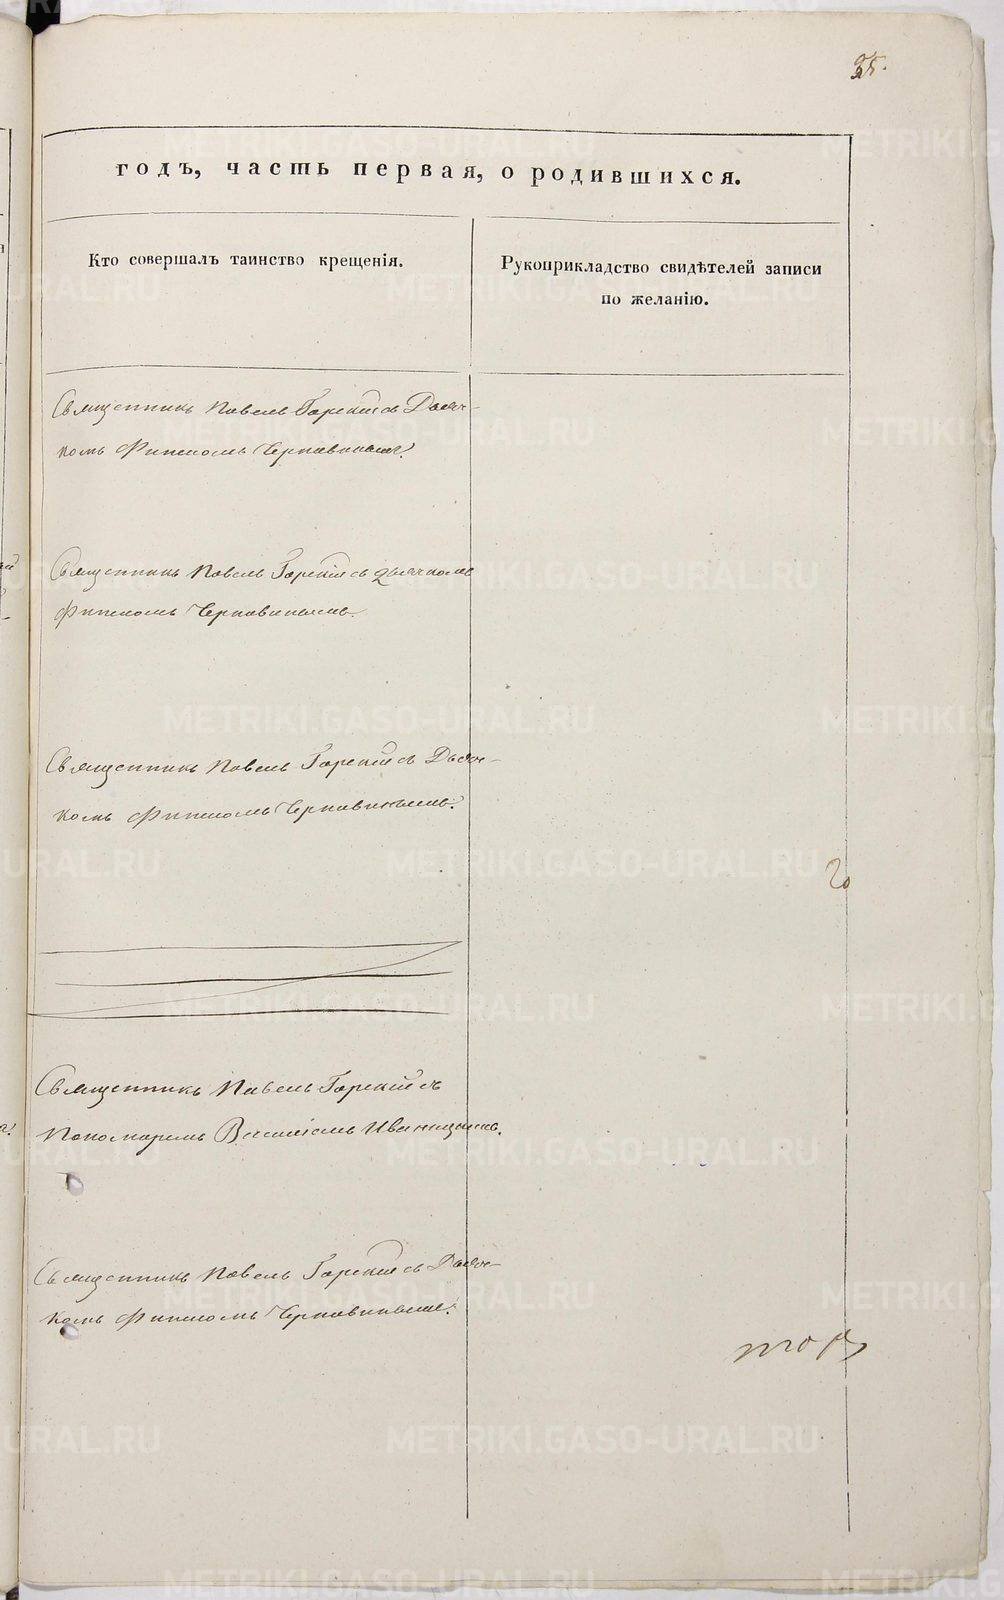 35.
годъ, часть первая, о родившихся.
Кто совершалъ таинство крещенія.
Рукоприкладство свидѣтелей записи
по желанію.
Священникъ Павелъ Горскій съ Дьяч-
комъ Филиппомъ Черновинымъ.
Священникъ Павелъ Горскій съ дьячкомъ
Филиппомъ Черновинымъ.
Священникъ Павелъ Горскій съ Дьяч-
комъ Филиппомъ Черновинымъ.
Священникъ Павелъ Горскій съ
Пономаремъ Василіемъ
Священникъ Павелъ Горскій съ Дьяч-
комъ Филиппомъ Черновинымъ.
METRIKI.GASO-URAL.RU